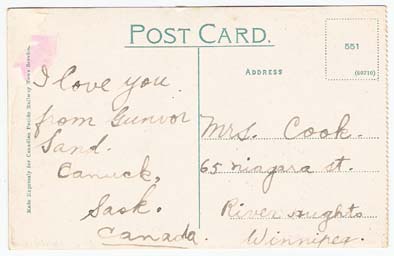 POST CARD.
551
(60710)
ADDRESS
Made Expressly for Canadian Pacific Railway News Service.
I love you.
from Gunvor
Sand.
Canuck,
Sask.
Canada.
Mrs. Cook.
65 niagara st.
River Hights
Winnipeg.